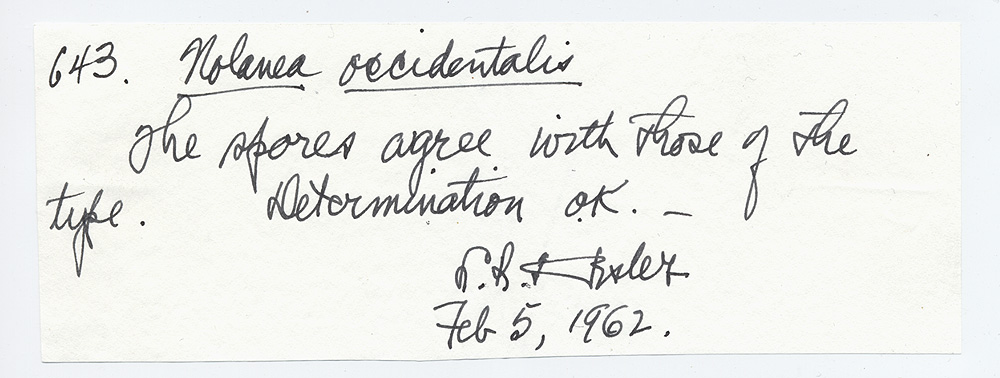 643. Nolanea occidentalis
The spores agree with those of the
type. Determination OK. –
L.R. Hesler
Feb 5, 1962.